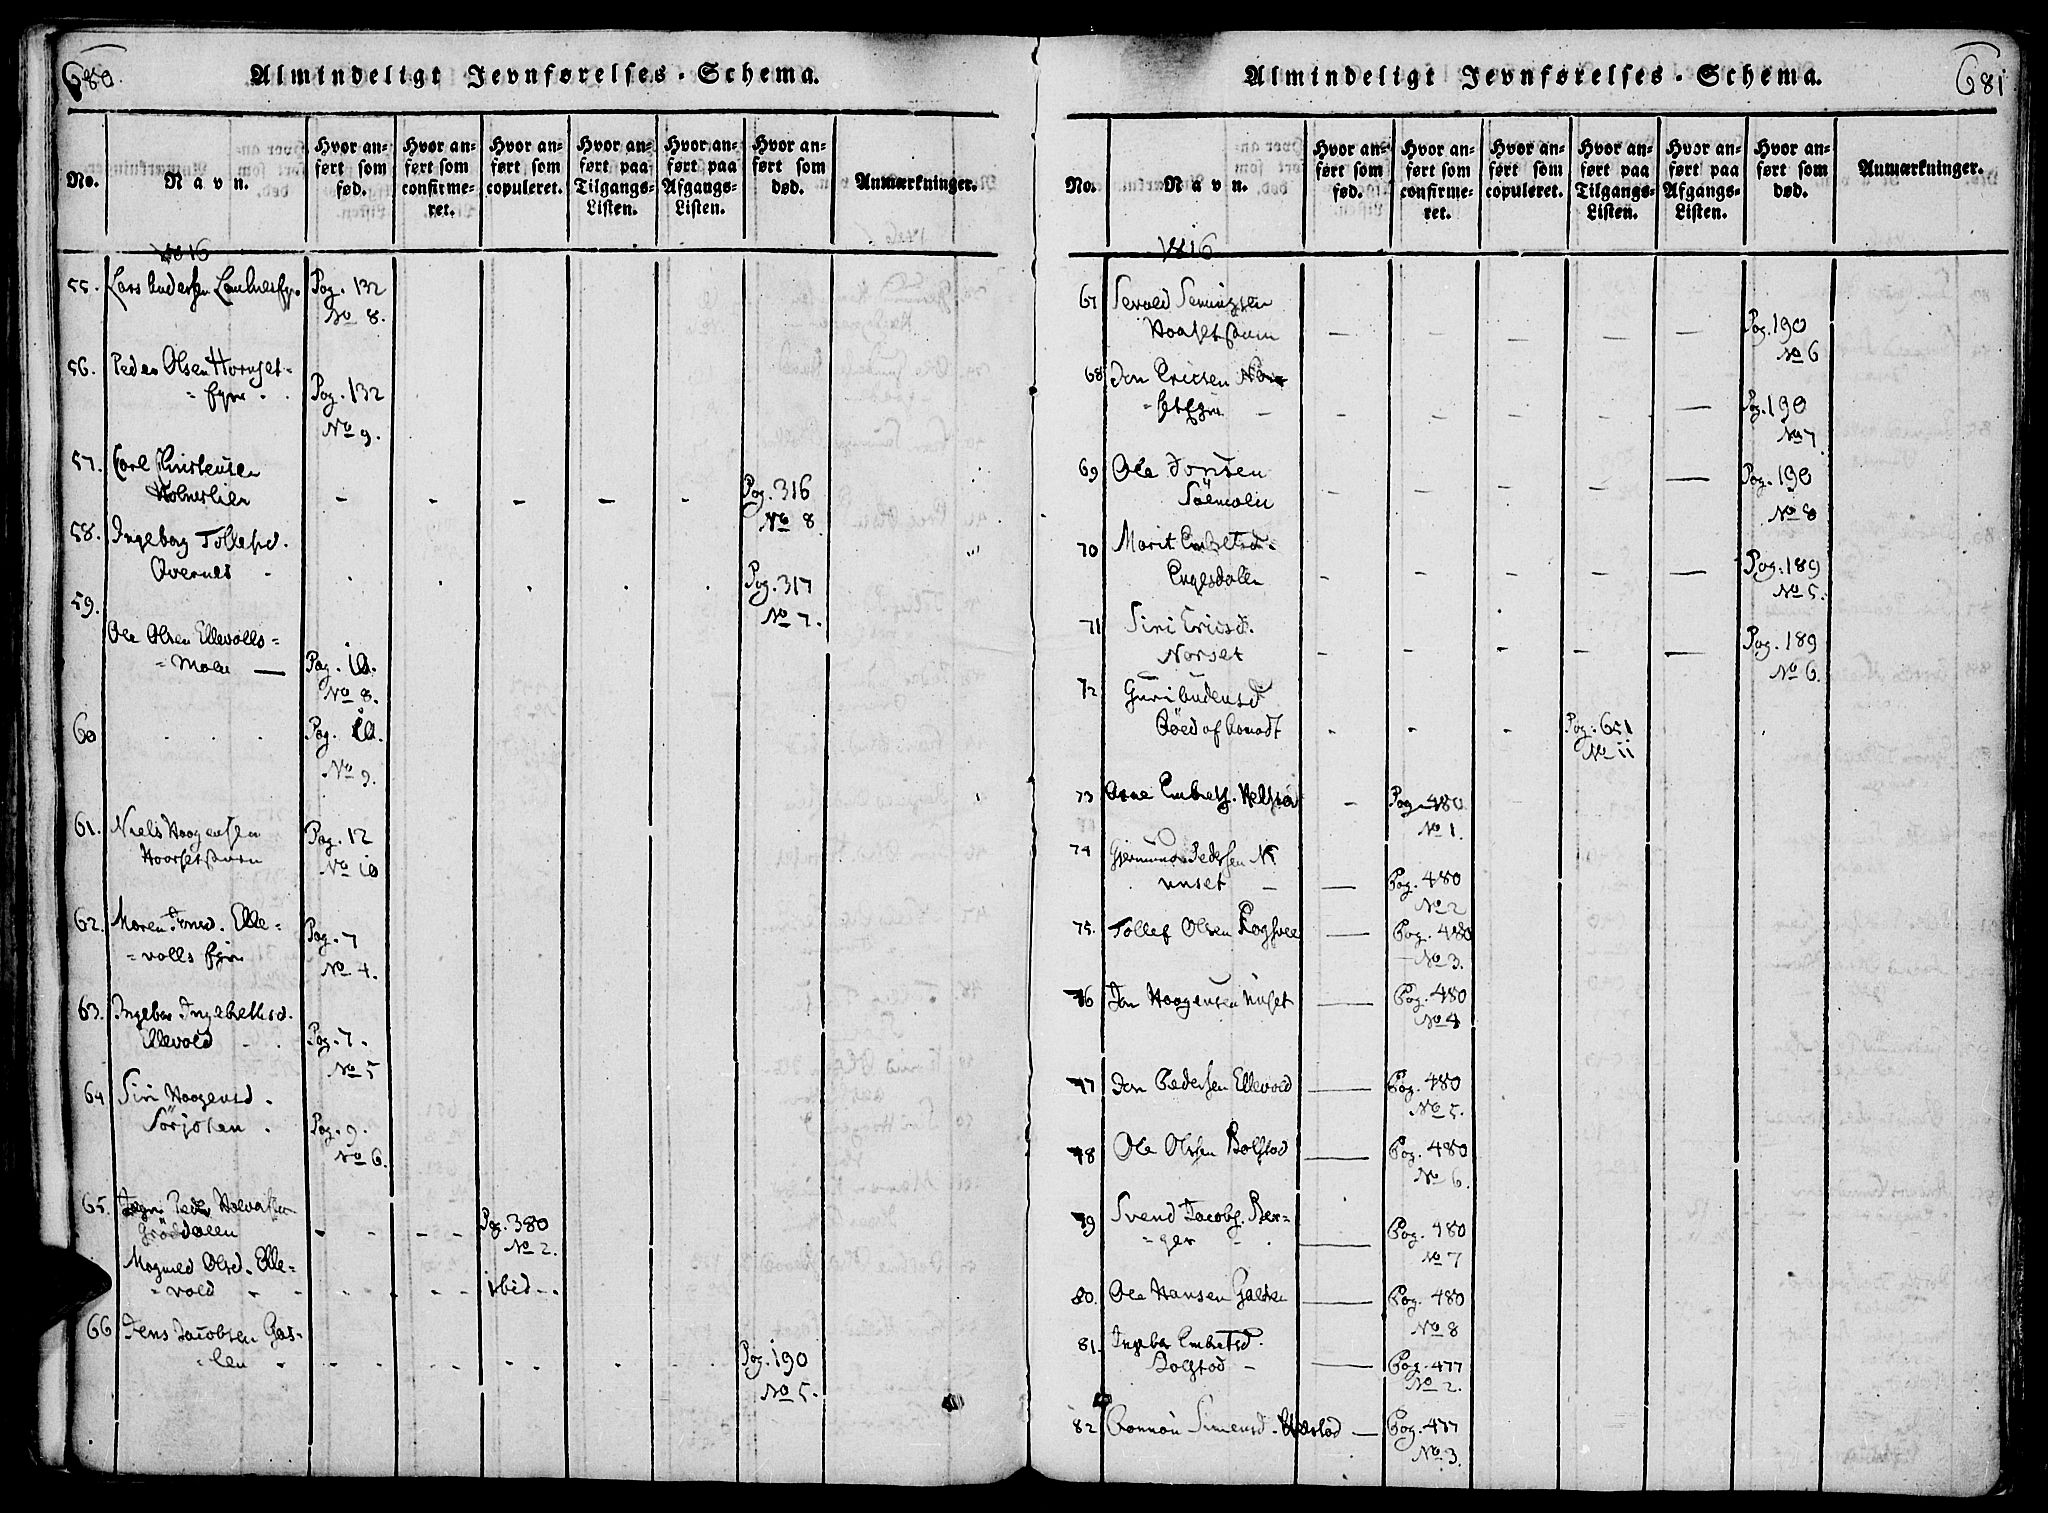 680.
Almindeligt Jevnførelses-Schema.
No.
Navn.
Hvor an-
ført som
fød.
Hvor an-
ført som
confirme-
ret.
Hvor an-
ført som
copuleret.
Hvor an-
ført paa
Tilgangs-
Listen.
Hvor an-
ført paa
Afgangs-
Listen.
Hvor an-
ført som
død.
Anmærkninger.
1816
55. Lars Andersen Pag. 132
No 8.
56. Peder Olsen Hornset-
- Eyer Pag. 132
No 9.
57. Carl Christensen
Holmeslien - - - - - Pag. 316
No 8.
58. Ingeborg Tollefsd.
Overnes Pag. 317
59. No 7.
Ole Olsen Ellevolls=
=Moen — Pag. 10.
No 8.
60 Pag. 10.
No 9.
61. Niels Haagensen Pag. 12
No 10
62. Maren Jonsd. Elle=
=volls Eyer Pag. 7
No 4.
63. Ingebor Ingebrethsd.
Ellevold Pag. 7.
No 5
64 Siri Haagensd.
Sörjoten. Pag. 9.
No 6.
65. Peder
Gröndalen - - - - Pag. 380
No 2.
Magnild Olsd. Elle=
=vold ibid..
66 Jens Jacobsen Gas-
-len Pag. 190
No 5.
681
Almindeligt Jevnførelses-Schema.
No.
Navn.
Hvor an-
ført som
fød.
Hvor an-
ført som
confirme-
ret.
Hvor an-
ført som
copuleret.
Hvor an-
ført paa
Tilgangs-
Listen.
Hvor an-
ført paa
Afgangs-
Listen.
Hvor an-
ført som
død.
Anmærkninger.
1816
67 Sevald Semingsen
- - - - — Pag. 190
No 6
68 Jon Ericsen
- - - - — Pag. 190
No 7
69 Ole Jonsen
Sölmolien - - - - — Pag. 190
No 8
70 Marit Embretsd.
Engesdalen - - - - — Pag. 189
No 5.
71 Siri Ericsd.
Norset - - - - — Pag. 189
No 6.
72 Guri Audensd.
- - - Pag. 651
No 11
73 Arne Embrets. - Pag. 480
No 1.
74 Gjermund Pedersen Ni
unset - — Pag. 480
No 2
75. Tollef Olsen Rogsvee — Pag. 480
No 3.
76 Jon Haagensen — Pag. 480
No 4
77 Jon Pedersen Ellevold — Pag. 480
No 5.
78 Ole Olsen Bolstad — Pag. 480
No 6.
79 Svend Jacobs. Ber=
=ger — Pag. 480
No 7
80. Ole Hansen Galten — Pag. 480
No 8
81. Ingebor Embretsd.
Bolstad - — Pag. 477
No 2.
82 Rønnau Simensd. — Pag. 477
No 3.